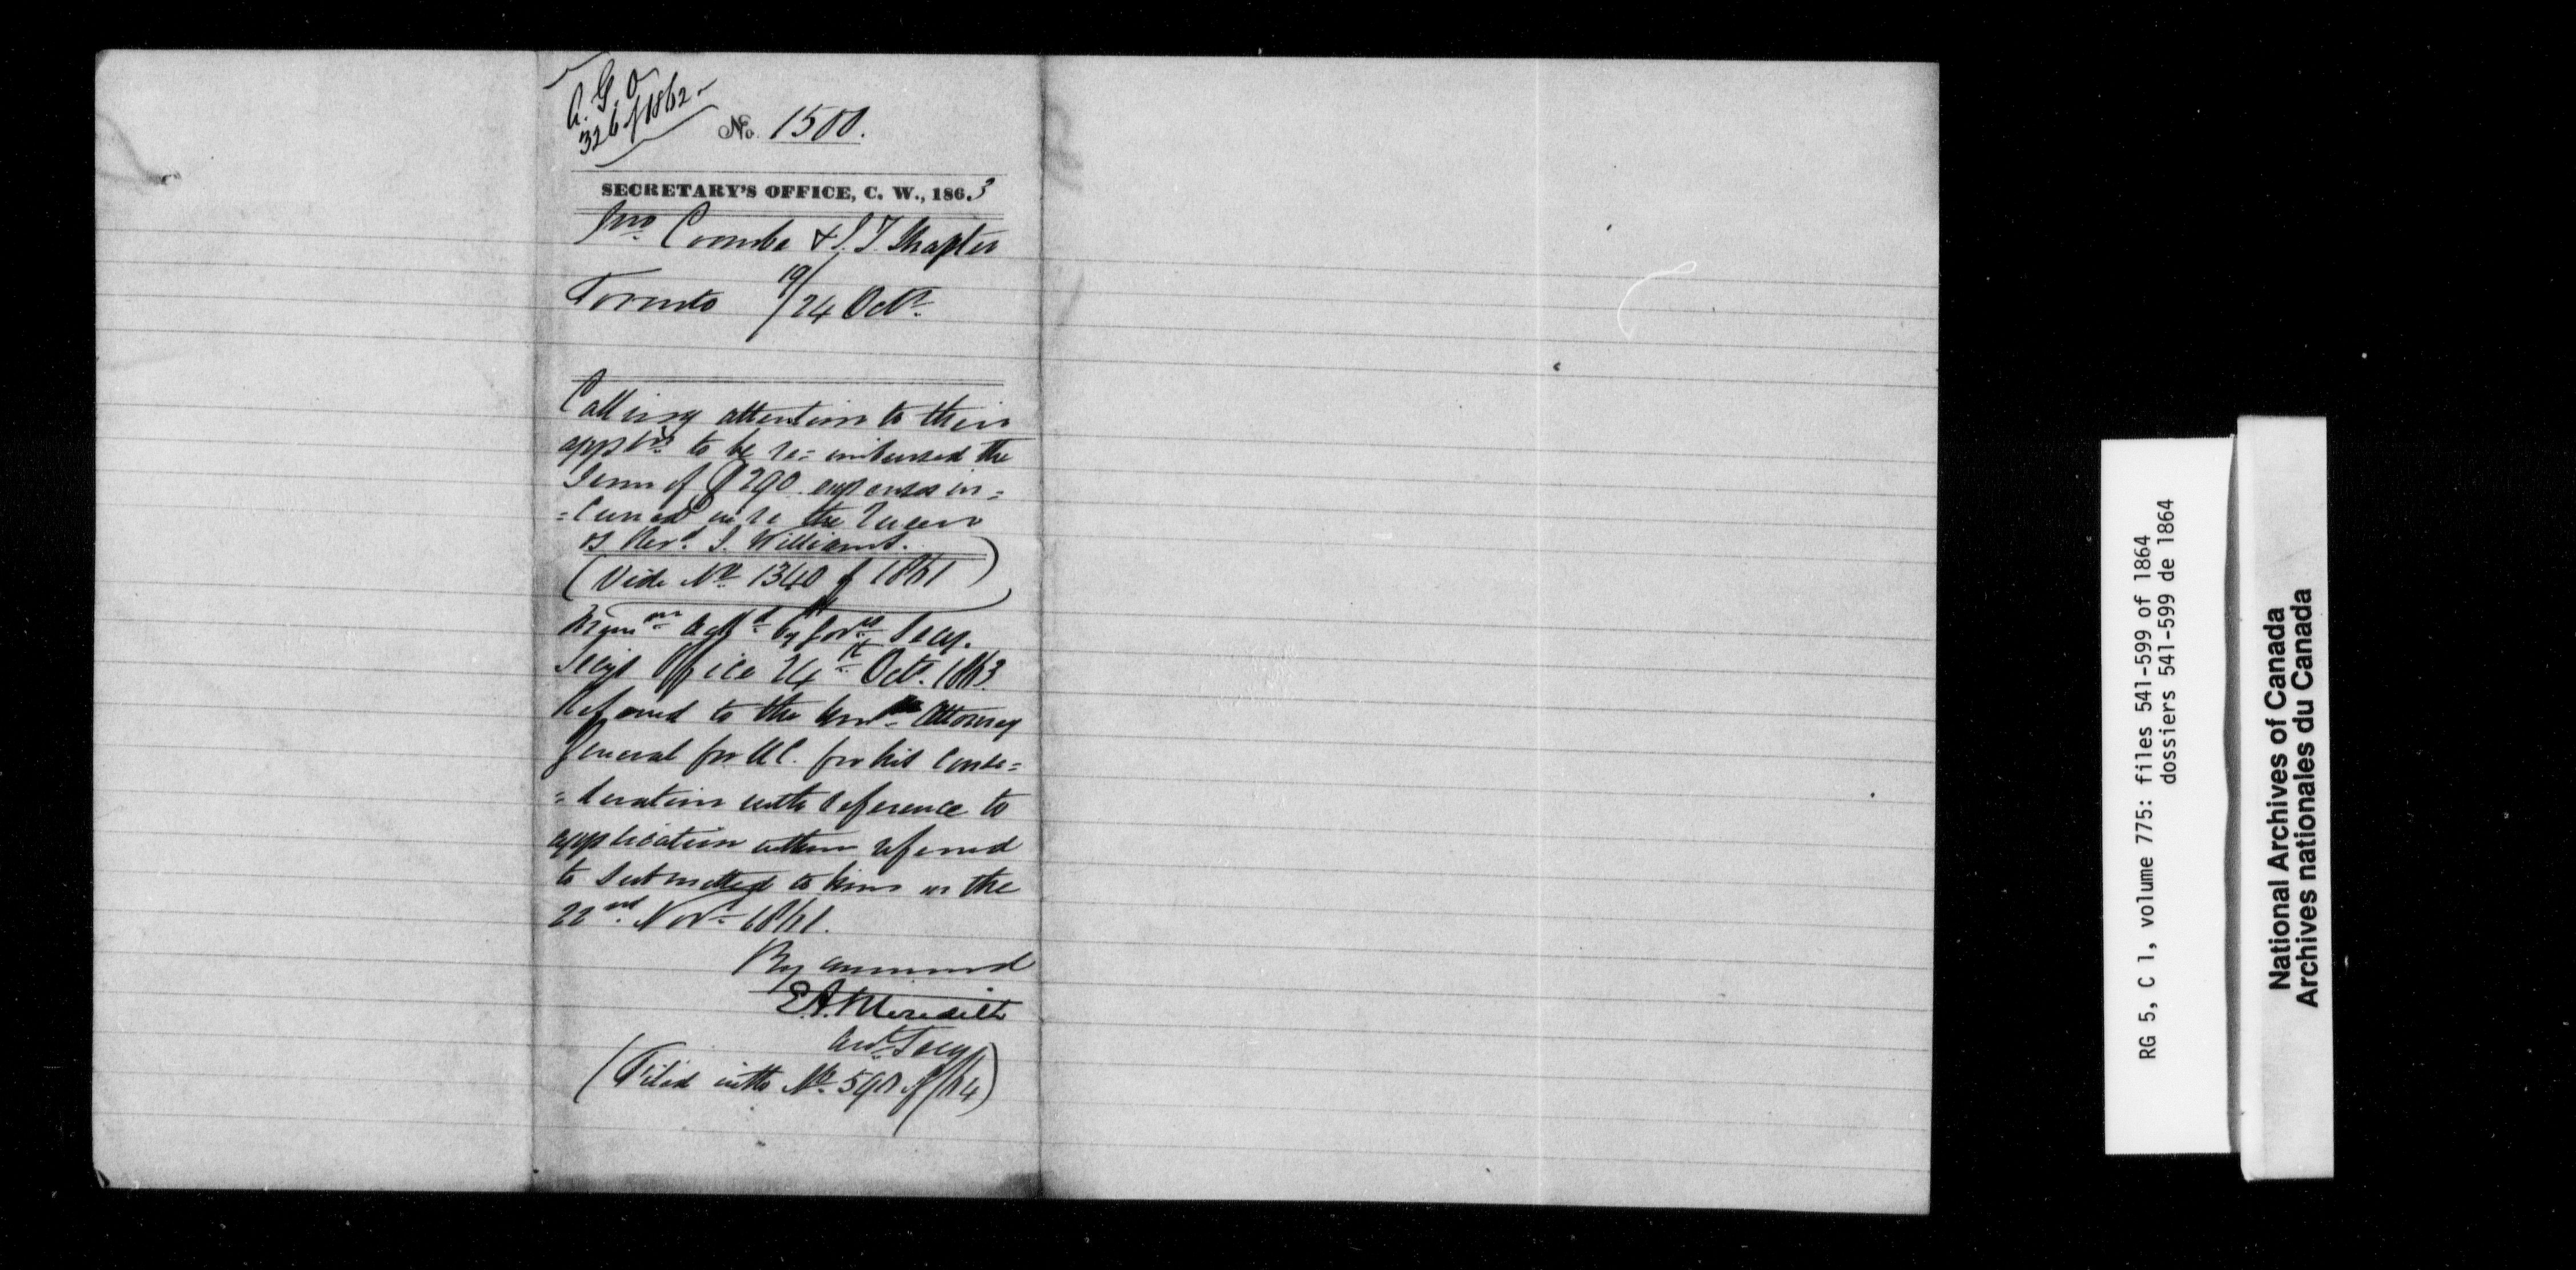 A. G. O
326 of 1862
No. 1500.
SECRETARY'S OFFICE, C. W., 1863
Jno Coombe & J. T. Shapter
Toronto 19/24 Octr
Calling attention to their
appln to be re=imbursed the
Sum of $290 expenses in=
=curred in re the Queen
vs Revd J. Williams.
(Vide No 1340 of 1861)
by Govrs Secy.
Secys Office 24th Oct. 1863
Referred to the Honble Attorney
General for U.C. for his Consi=
=deration with reference to
application within referred
to submitted to him on the
22nd Novr 1861.
By Command
E. A. Meredith
Asst Secy
(Filed with No 590 of /64)
RG 5, C 1, volume 775: files 541-599 of 1864
dossiers 541-599 de 1864
National Archives of Canada
Archives nationales du Canada